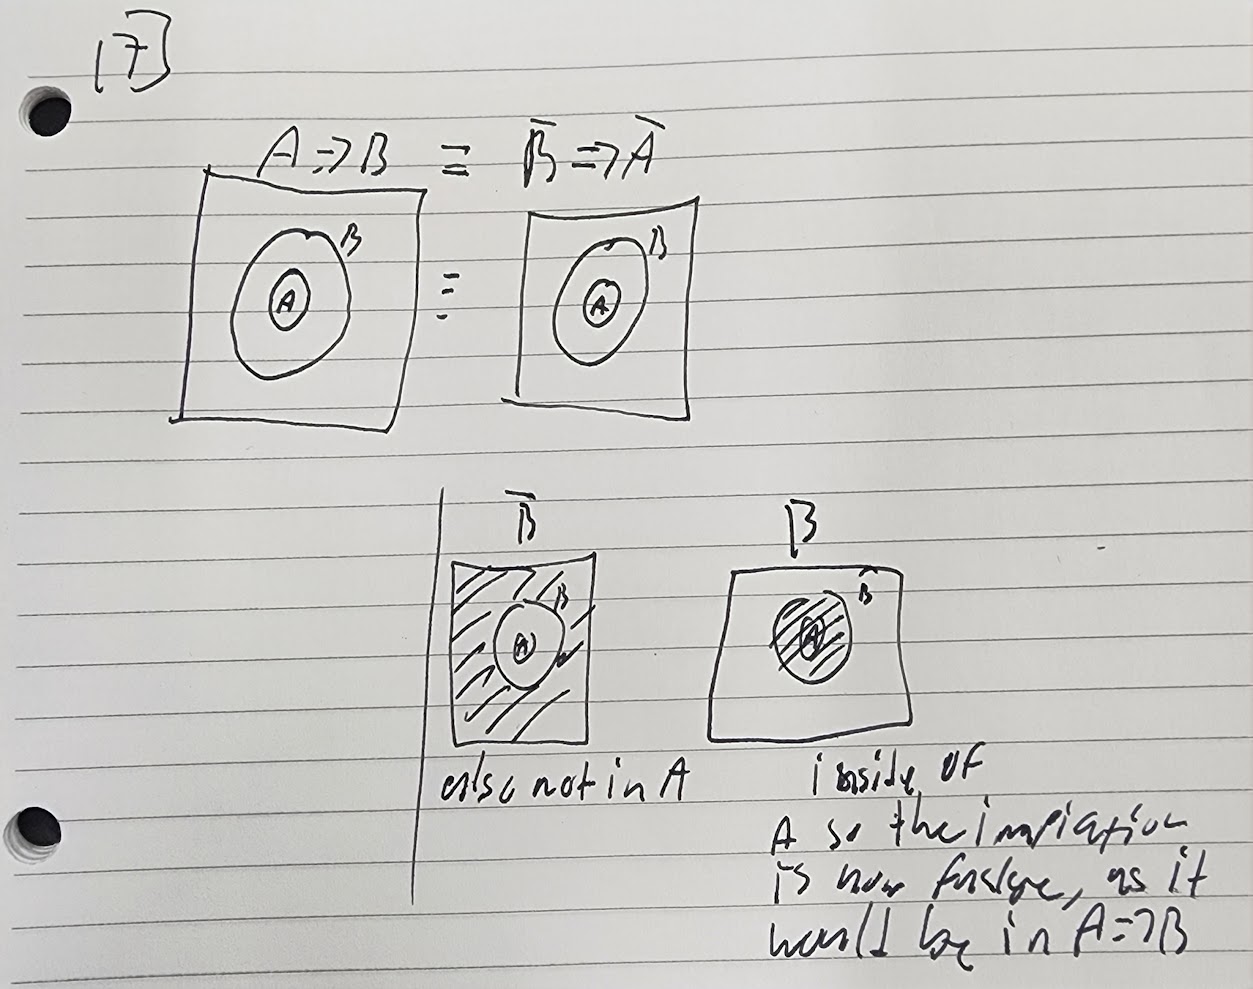 [7]
A => B ≡ B̄ => Ā
B B
A ≡ A
B̄ B
B B
A A
also not in A inside of
A so the implication
is now false, as it
would be in A => B